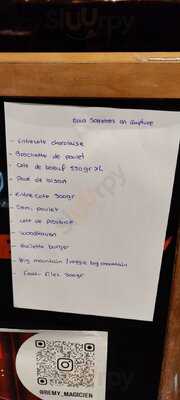 Nous Sommes en Rupture
- Entrecote charolaise
- Brochette de poulet
- Cote de boeuf 550gr XL
- Pavé de bison
- Entrecote 300gr
- Demi poulet
- cote de
- Woodhaven
- Raclette burger
- Big mountain / veggie big mountain
- faux filet 300gr
@REMY_MAGICIEN
Sluurpy